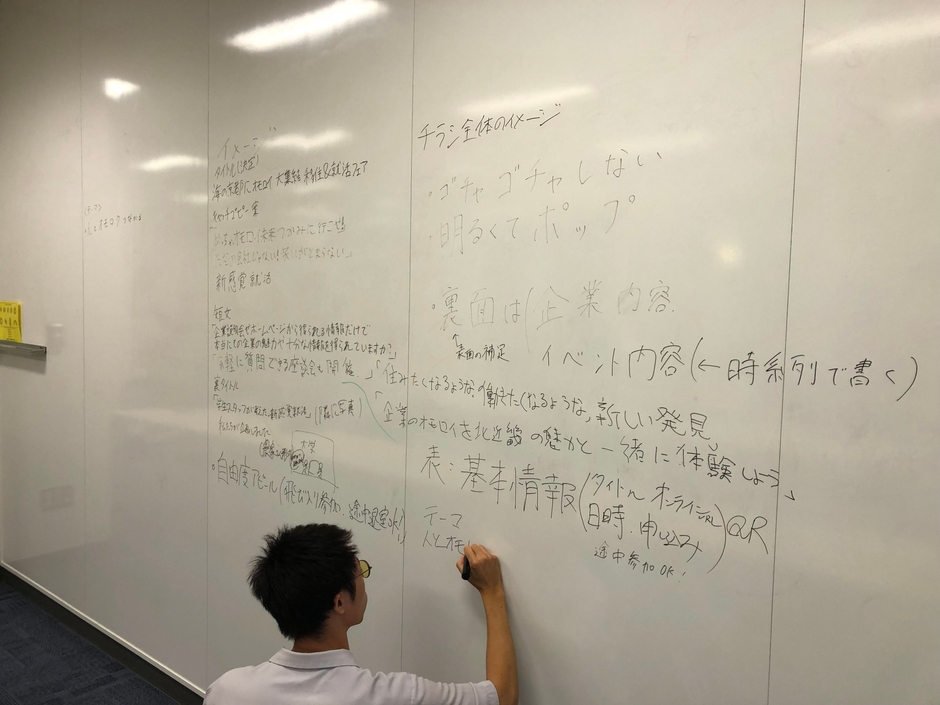 イメージ
タイトル(決定)
海の京都にオモロイ大集結 移住&就活フェア
キャッチコピー案
新感覚就活
短文
「企業説明会やホームページから得られる情報だけで
本当にその企業の魅力や十分な情報を得られていますか?」
気軽に質問できる座談会も開催
裏タイトル
大学
・自由度アピール(飛び入り参加、途中退室OK!)
チラシ全体のイメージ
・ゴチャゴチャしない
・明るくてポップ
・裏面は(企業内容
表面の補足
イベント内容(←時系列で書く)
「住みたくなるような、働きたくなるような、新しい発見」
「企業のオモロイを北近畿の魅力と一緒に体験しよう」
表:基本情報(タイトル オンライン
日時、申し込み)QR
途中参加OK!
テーマ
人とオモ